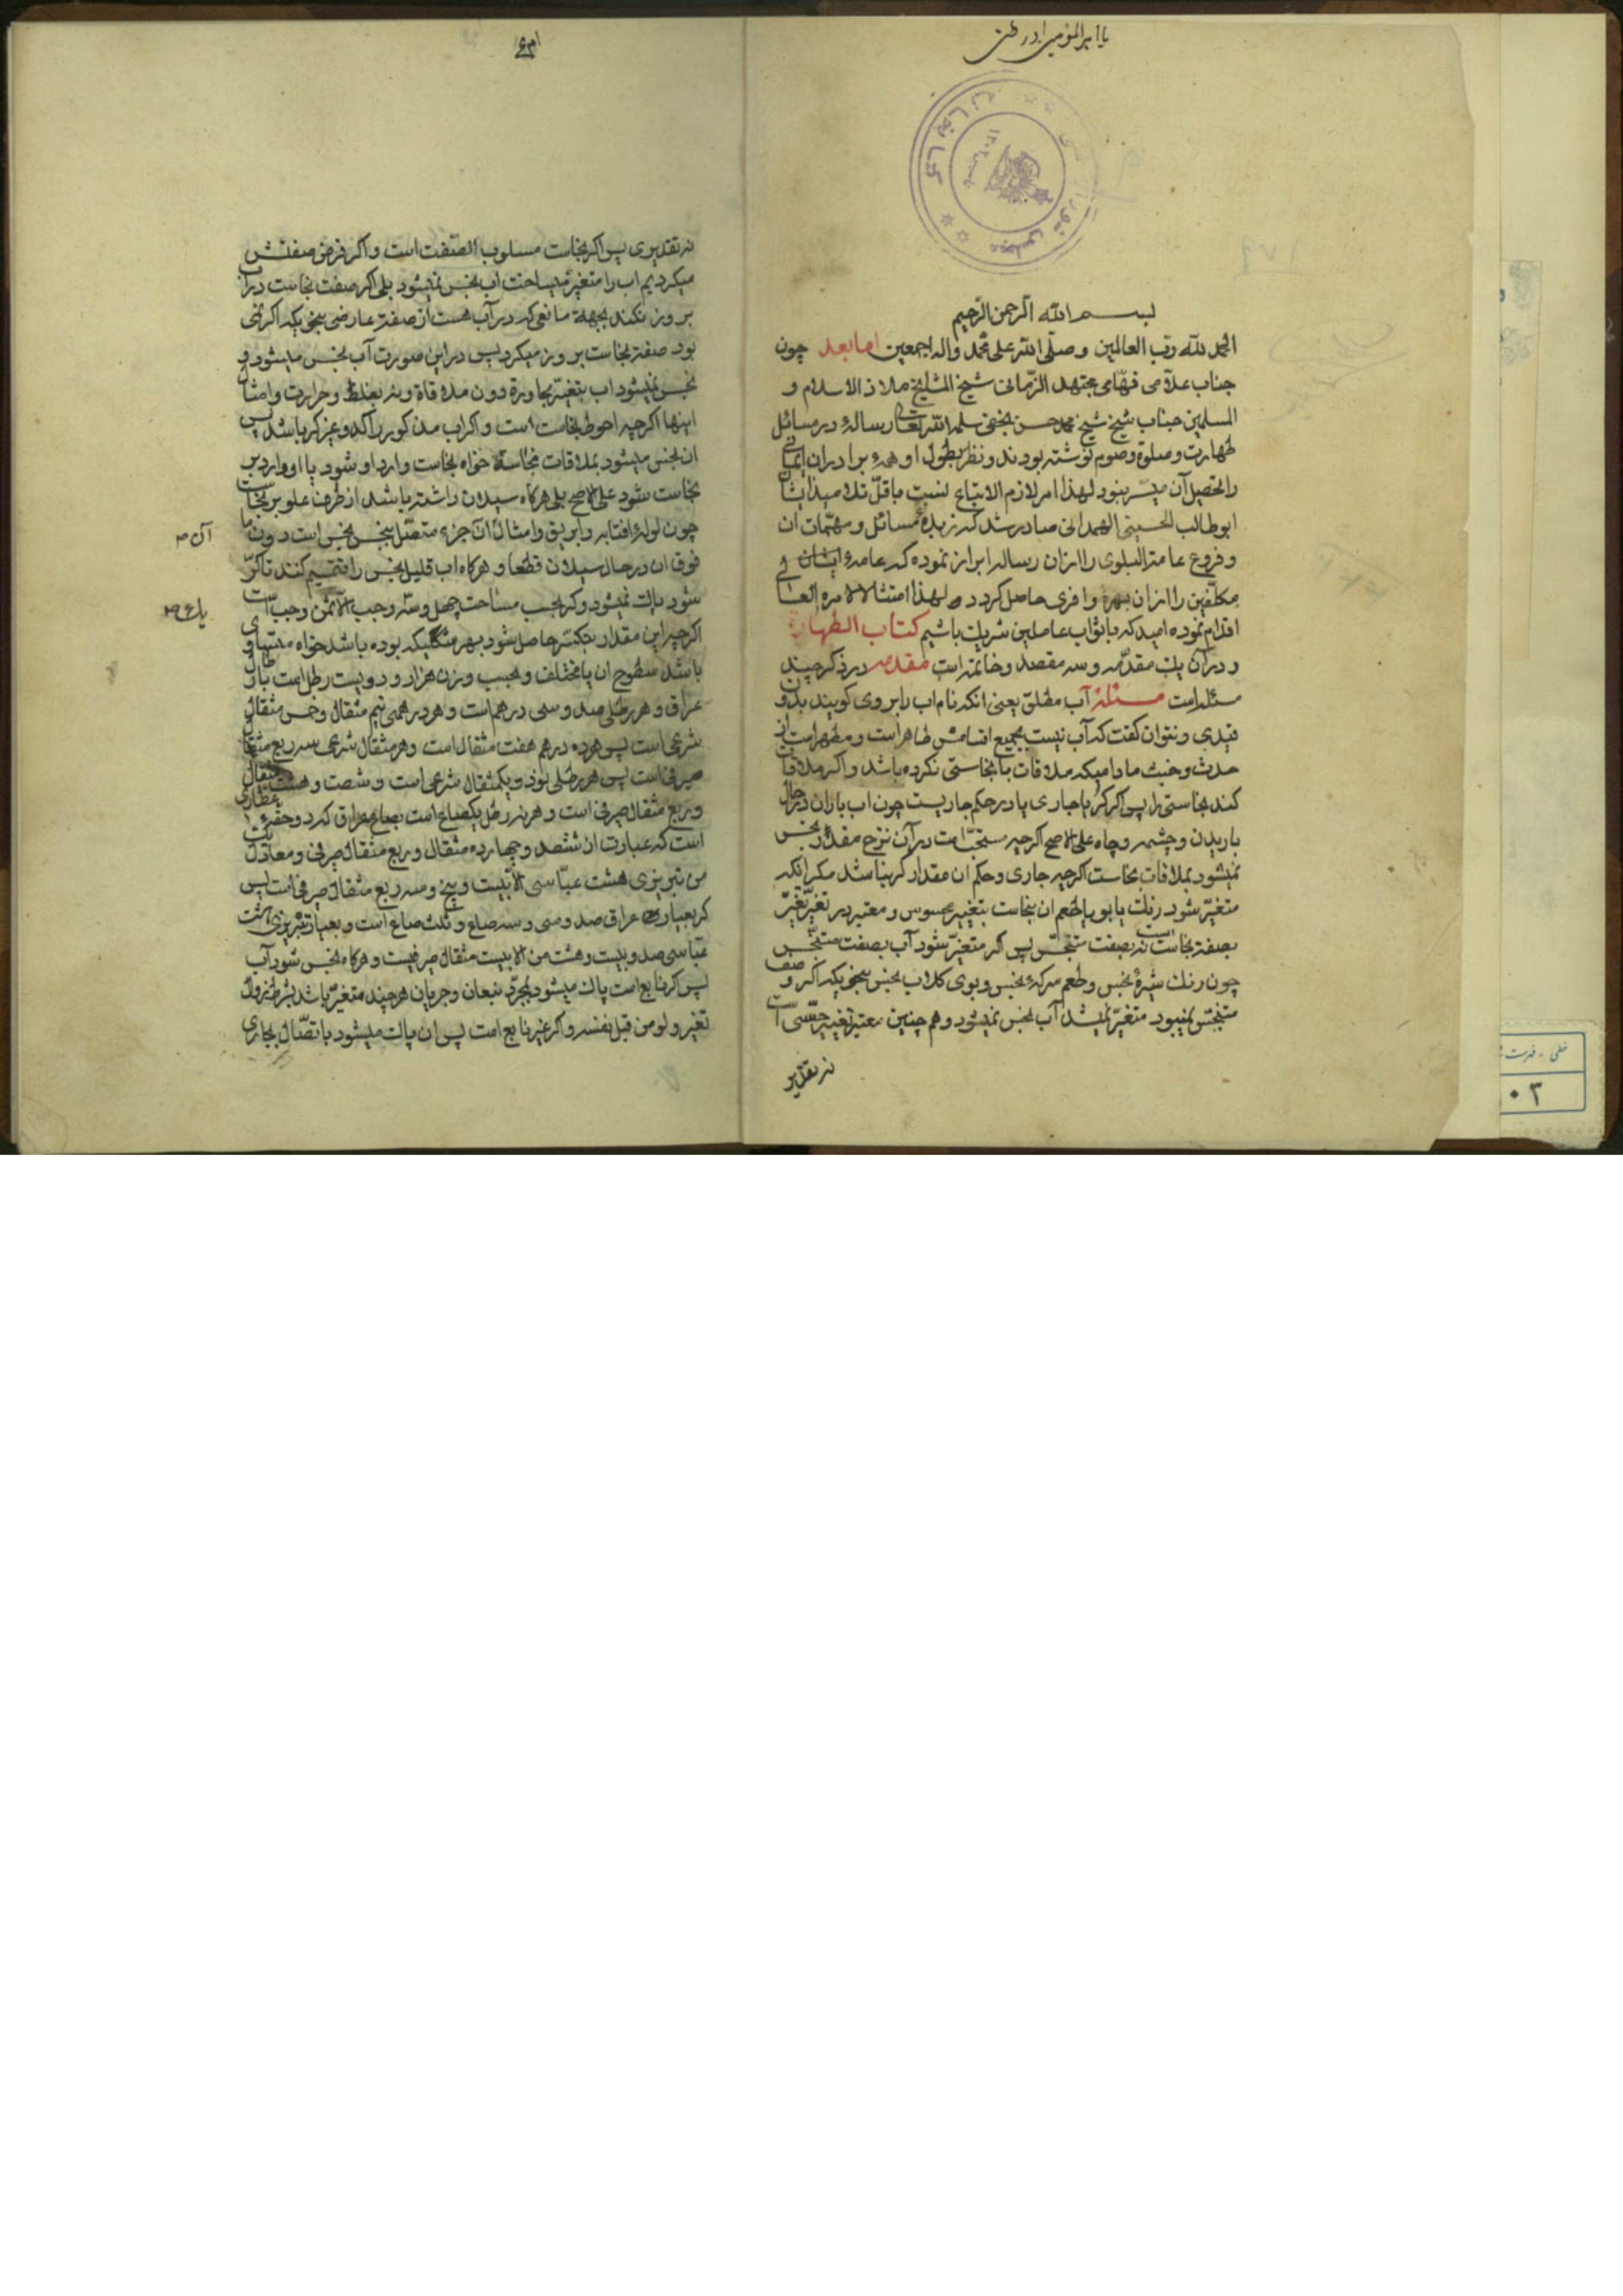 یا امیرالمؤمنین ادرکنی
بسم الله الرحمن الرحیم
الحمد لله رب العالمین و صلی الله علی محمد واله اجمعین اما بعد چون
جناب علامی فهامی مجتهد الزمانی شیخ المشایخ ملاذ الاسلام و
المسلمین جناب شیخ شیخ محمد حسن نجفی سلمه الله تعالی رسالهٔ در مسائل
طهارت و صلوة و صوم نوشته بودند و نظر بطول او همهٔ برادران ایمانی
را تحصیل آن میسر نبود لهذا امر لازم الاتباع نسبت باقل تلامیذ ایشان
ابوطالب الحسینی الهمدانی صادر شد که زبدهٔ مسائل و مهمات ان
و فروع عامة البلوی را از ان رساله ابراز نموده که عامهٔ ایشان و
مکلفین را از ان بهرهٔ وافری حاصل کردد و لهذا امتثالا لامره العالی
اقدام نموده امید که با ثواب عاملین شریک باشیم کتاب الطهارة
و در آن یک مقدمه و سه مقصد و خاتمه است مقدمه در ذکر چند
مسئله است مسئلة آب مطلق یعنی انکه نام اب را بر وی کویند بدون
قیدی و نتوان کفت که آب نیست بجمیع اقسامش طاهر است و مطهر است از
حدث و خبث مادامیکه ملاقات با نجاستی نکرده باشد و اکر ملاقات
کند نجاستی را پس اکر کر یا جاری یا در حکم جاریست چون اب باران در حال
باریدن و چشمه و چاه علی الاصح اکرچه مستحب است در آن نزح مقدر نجس
نمیشود بملاقات نجاست اکرچه جاری و حکم ان مقدار کر نباشد مکر انکه
متغیر شود رنک یا بو یا طعم ان بنجاست بتغییر محسوس و معتبر در تغیر تغیر
بصفة نجاست است نه بصفت متنجس پس اکر متغیر شود آب بصفت متنجس
چون رنک شیرهٔ نجس و طعم سرکهٔ نجس و بوی کلاب نجس بنحویکه اکر وصف
متنجس نمیبود متغیر نمیشد آب نجس نمیشود و هم چنین معتبر تغییر حسی است
نه تقدیر
نه تقدیری پس اکر نجاست مسلوب الصفت است و اکر فرض صفتش
میکردیم اب را متغیر میساخت اب نجس نمیشود بلی اکر صفت نجاست در آن
بروز نکند بجهة مانعی که در آب هست از صفت عارضی بنحویکه اکر نمی
بود صفة نجاست بروز میکرد پس در این صورت آب نجس میشود و
نجس نمیشود اب بتغیر بمجاورة دون ملاقاة و نه بغلظ و حرارت و امثال
اینها اکرچه احوط نجاست است و اکر اب مذکور راکد و غیر کر باشد پس
ان نجس میشود بملاقات نجاسة خواه نجاست وارد او شود یا او وارد بر
نجاست شود علی الاصح بلی هرکاه سیلان داشته باشد از طرف علو بر نجاست
چون لولهٔ افتابه و ابریق و امثال ان آن جزء متصل بنجس نجس است دون ما
فوق ان در حال سیلان قطعا و هرکاه اب قلیل نجس را تتمیم کنند تا کر
شود پاک نمیشود و کر بحسب مساحت چهل و سه وجب الا ثمن وجب است
اکرچه این مقدار بتکسر حاصل شود بهر شکلیکه بوده باشد خواه متساوی
باشد سطوح ان یا مختلف و بحسب وزن هزار و دویست رطل است بارطال
عراق و هر رطلی صد و سی درهم است و هر درهمی نیم مثقال و خمس مثقال
شرعی است پس هر ده درهم هفت مثقال است و هر مثقال شرعی سه ربع مثقال
صیرفی است پس هر رطلی نود و یکمثقال شرعی است و شصت و هشت مثقال
و ربع مثقال صیرفی است و هر نه رطل یکصاع است بصاع عراق
است که عبارت از ششصد و چهارده مثقال و ربع مثقال صیرفی و معادل یک
من تبریزی هشت عباسی الا بیست و پنج و سه ربع مثقال صیرفی است پس
کر بعیار عراق صد و سی و سه صاع و ثلث صاع است و بعیار تبریزی هشت
عباسی صد و بیست و هشت من الا بیست مثقال صیرفیست و هرکاه نجس شود آب
پس اکر نابع است پاک میشود بمجرد نبعان و جریان هرچند متغیر باشد بشرط زوال
تغیر ولو من قبل نفسه و اکر غیر نابع است پس ان پاک میشود باتصال بجاری
آن